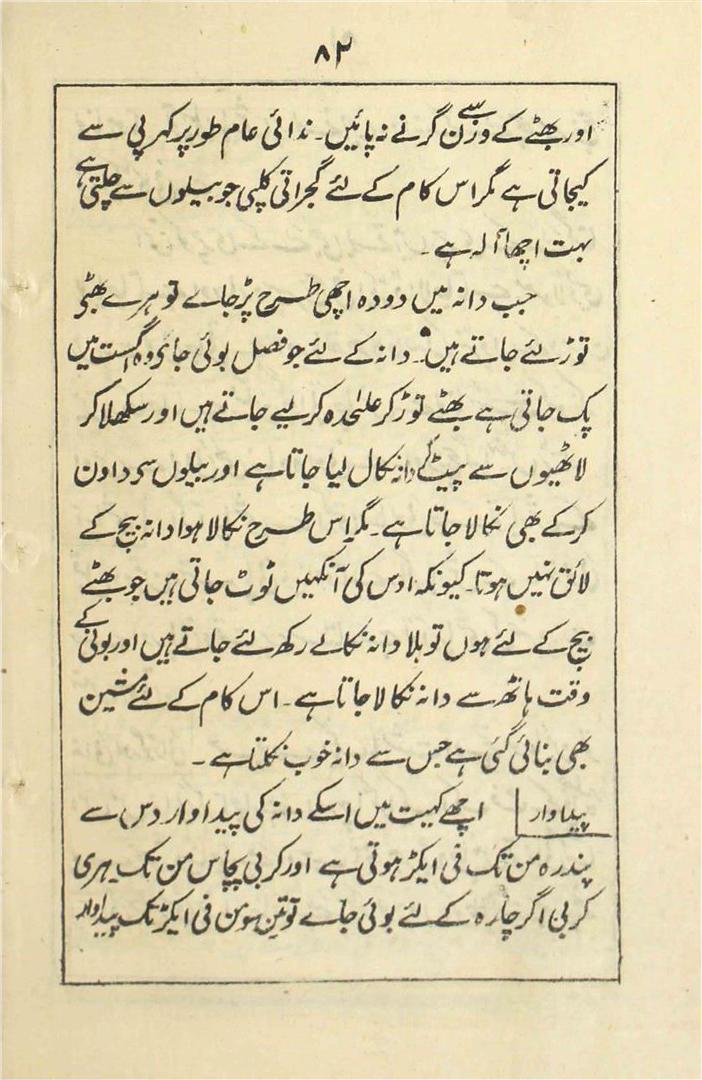 ۸۲
اور بھٹے کے وزن سے گرنے نہ پائیں۔ ندائی عام طور پر کھرپی سے
کیجاتی ہے مگر اس کام کے لئے گجراتی کلپی جو بیلوں سے چلتی ہے
بہت اچھا آلہ ہے۔
جب دانہ میں دودہ اچھی طرح پڑ جاے تو ہرے بھٹے
توڑ لئے جاتے ہیں۔ دانہ کے لئے جو فصل بوئی جاے وہ اگست میں
پک جاتی ہے بھٹے توڑ کر علیٰحدہ کر لیے جاتے ہیں اور سکھلا کر
لاٹھیوں سے پیٹ کے دانہ نکال لیا جاتا ہے اور بیلوں سی داون
کر کے بھی نکالا جاتا ہے۔ مگر اس طرح نکالا ہوا دانہ بیج کے
لائق نہیں ہوتا۔ کیونکہ اوس کی آنکہیں ٹوٹ جاتی ہیں جو بھٹے
بیج کے لئے ہوں تو بلا دانہ نکالے رکھ لئے جاتے ہیں اور بونے کے
وقت ہاتھ سے دانہ نکالا جاتا ہے۔ اس کام کے لئے مشین
بھی بنائی گئی ہے جس سے دانہ خوب نکلتا ہے۔
پیداوار | اچھے کہیت میں اسکے دانہ کی پیداوار دس سے
پندرہ من تک فی ایکڑ ہوتی ہے اور کربی پچاس من تک ہری
کربی اگر چارہ کے لئے بوئی جاے تو تین سو من فی ایکڑ تک پیداوار